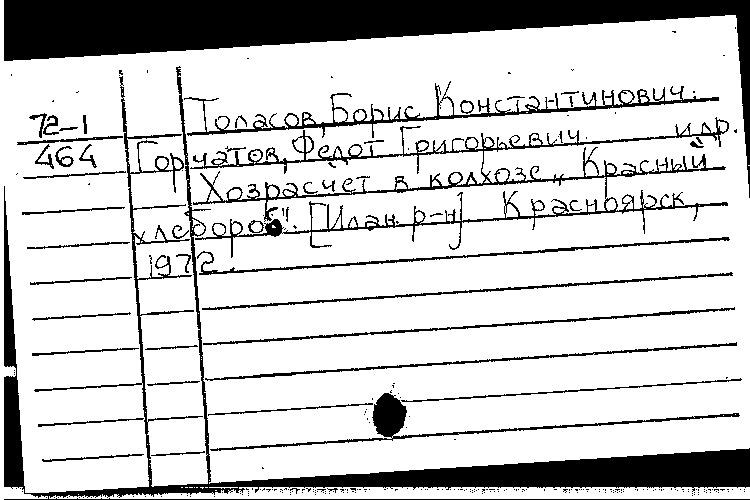 72-1 Толасов, Борис Константинович.
464 Горчатов, Федот Григорьевич. и др.
Хозрасчет в колхозе „Красный
хлебороб". [Илан. р-н]. Красноярск,
1972.